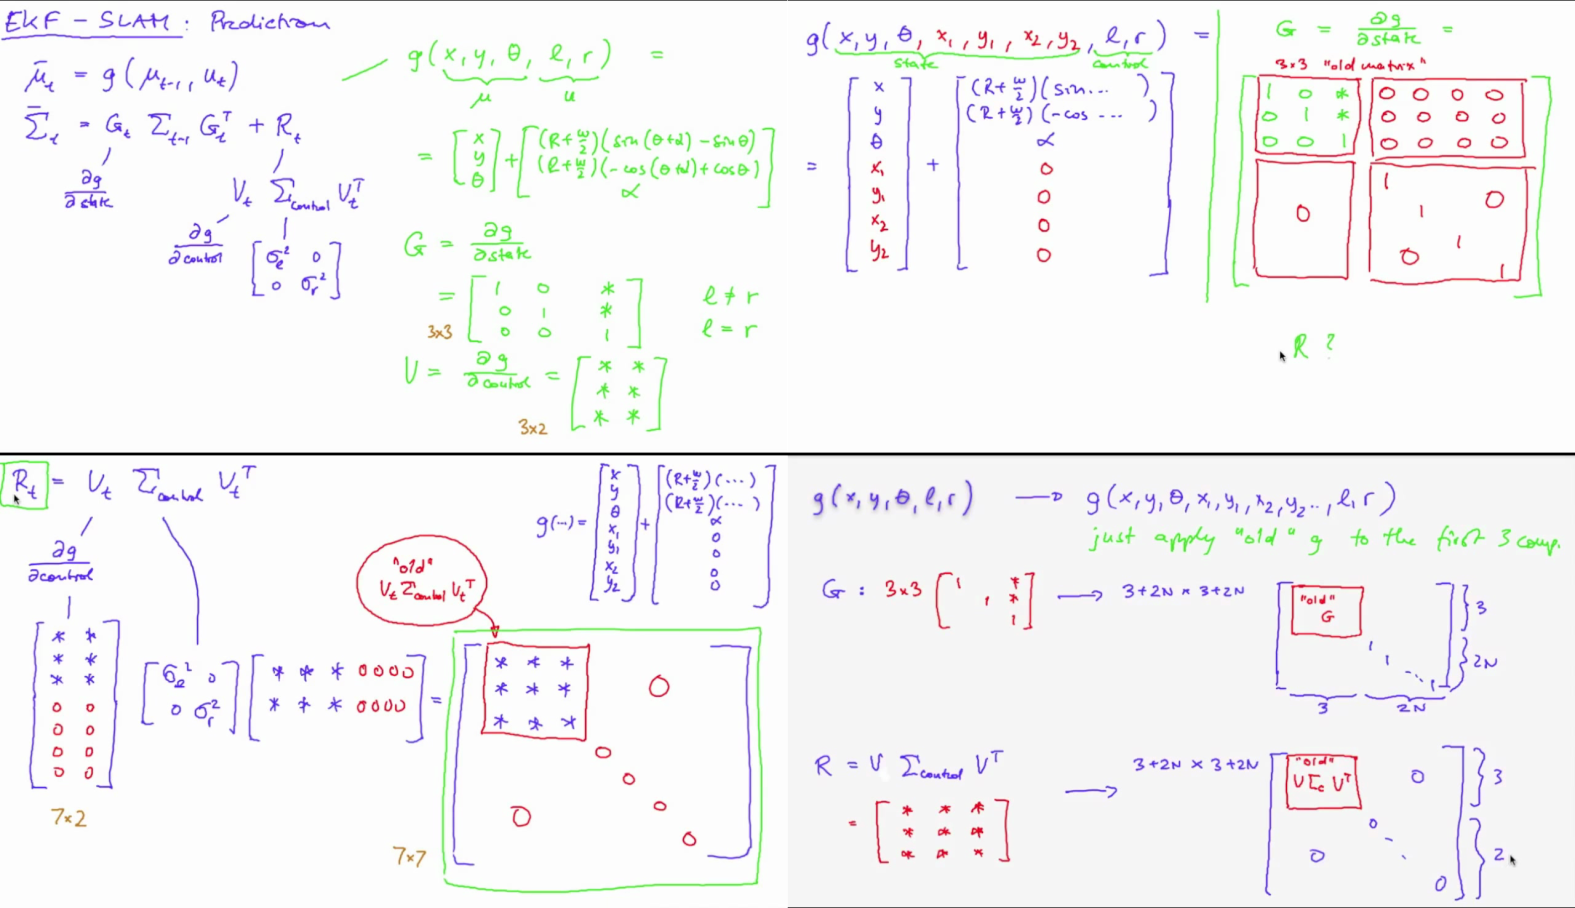 EKF - SLAM : Prediction
μ̄_t = g(μ_{t-1}, u_t)
Σ̄_t = G_t Σ_{t-1} G_t^T + R_t
∂g
∂state
V_t Σ_control V_t^T
∂g
∂control
[σ_l² 0
0 σ_r²]
g(x, y, θ, l, r) =
μ u
= [x y θ] + [(R+w/2)(sin(θ+α) - sinθ)
(R+w/2)(-cos(θ+α) + cosθ)
α]
G = ∂g/∂state
= [1 0 *
0 1 *
0 0 1]
3x3
l ≠ r
l = r
V = ∂g/∂control = [* *
* *
* *]
3x2
g(x, y, θ, x₁, y₁, x₂, y₂, l, r) =
state control
= [x y θ x₁ y₁ x₂ y₂] + [(R+w/2)(sin... )
(R+w/2)(-cos ... )
α
0
0
0
0]
G = ∂g/∂state =
3x3 "old matrix"
1 0 * 0 0 0 0
0 1 * 0 0 0 0
0 0 1 0 0 0 0
0 1 0
1
1
0 1
R ?
R_t = V_t Σ_control V_t^T
∂g
∂control
[* *
* *
* *
0 0
0 0
0 0
0 0]
7x2
[σ_l² 0
0 σ_r²]
[* * * 0 0 0 0
* * * 0 0 0 0] =
g(...) = [x y θ x₁ y₁ x₂ y₂] + [(R+w/2)(...)
(R+w/2)(...)
α
0
0
0
0]
"old"
V_t Σ_control V_t^T
* * * 0
* * *
* * *
0
0
0
0 0
7x7
g(x, y, θ, l, r) → g(x, y, θ, x₁, y₁, x₂, y₂ .., l, r)
just apply "old" g to the first 3 comp.
G : 3x3 [1 *
1 *
1] → 3+2N x 3+2N
"old"
G
1
1
...
1
3
2N
3 2N
R = V Σ_control V^T → 3+2N x 3+2N
= [* * *
* * *
* * *]
"old"
V Σ_c V^T
0
0
0
0
3
2